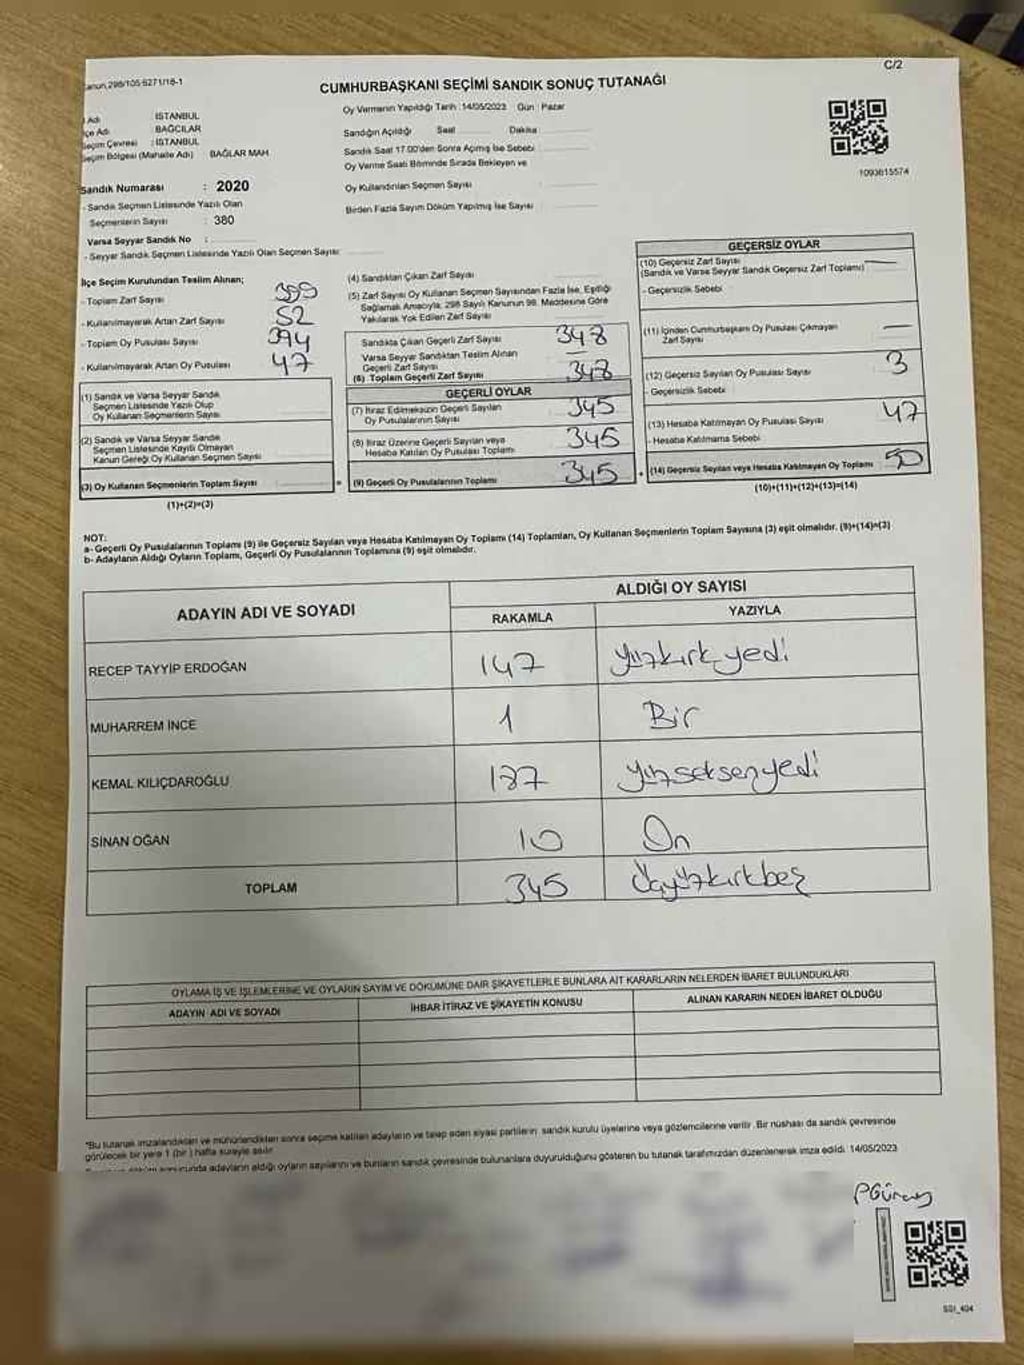 Kanun 298/105-6271/18-1
C/2
CUMHURBAŞKANI SEÇİMİ SANDIK SONUÇ TUTANAĞI
İl Adı : İSTANBUL
İlçe Adı : BAĞCILAR
Seçim Çevresi : İSTANBUL
Seçim Bölgesi (Mahalle Adı) BAĞLAR MAH
Sandık Numarası : 2020
- Sandık Seçmen Listesinde Yazılı Olan
Seçmenlerin Sayısı : 380
Varsa Seyyar Sandık No :
- Seyyar Sandık Seçmen Listesinde Yazılı Olan Seçmen Sayısı:
Oy Vermenin Yapıldığı Tarih :14/05/2023 Gün : Pazar
Sandığın Açıldığı Saat Dakika
Sandık Saat 17.00'den Sonra Açımış İse Sebebi
Oy Verme Saati Bitiminde Sırada Bekleyen ve
Oy Kullandırılan Seçmen Sayısı :
Birden Fazla Sayım Döküm Yapılmış İse Sayısı :
1093615574
İlçe Seçim Kurulundan Teslim Alınan;
- Toplam Zarf Sayısı 399
- Kullanılmayarak Artan Zarf Sayısı 52
- Toplam Oy Pusulası Sayısı 394
- Kullanılmayarak Artan Oy Pusulası 47
(1) Sandık ve Varsa Seyyar Sandık
Seçmen Listesinde Yazılı Olup
Oy Kullanan Seçmenlerin Sayısı
(2) Sandık ve Varsa Seyyar Sandık
Seçmen Listesinde Kayıtlı Olmayan
Kanun Gereği Oy Kullanan Seçmen Sayısı
(3) Oy Kullanan Seçmenlerin Toplam Sayısı =
(1)+(2)=(3)
(4) Sandıktan Çıkan Zarf Sayısı
(5) Zarf Sayısı Oy Kullanan Seçmen Sayısından Fazla İse, Eşitliği
Sağlamak Amacıyla, 298 Sayılı Kanunun 98. Maddesine Göre
Yakılarak Yok Edilen Zarf Sayısı
Sandıkta Çıkan Geçerli Zarf Sayısı 348
Varsa Seyyar Sandıktan Teslim Alınan
Geçerli Zarf Sayısı —
(6) Toplam Geçerli Zarf Sayısı 348
GEÇERLİ OYLAR
(7) İtiraz Edilmeksizin Geçerli Sayılan
Oy Pusulalarının Sayısı 345
(8) İtiraz Üzerine Geçerli Sayılan veya
Hesaba Katılan Oy Pusulası Toplamı 345
(9) Geçerli Oy Pusulalarının Toplamı 345 +
GEÇERSİZ OYLAR
(10) Geçersiz Zarf Sayısı —
(Sandık ve Varsa Seyyar Sandık Geçersiz Zarf Toplamı)
- Geçersizlik Sebebi
(11) İçinden Cumhurbaşkanı Oy Pusulası Çıkmayan
Zarf Sayısı —
(12) Geçersiz Sayılan Oy Pusulası Sayısı 3
- Geçersizlik Sebebi
(13) Hesaba Katılmayan Oy Pusulası Sayısı 47
- Hesaba Katılmama Sebebi
(14) Geçersiz Sayılan veya Hesaba Katılmayan Oy Toplamı 50
(10)+(11)+(12)+(13)=(14)
NOT:
a- Geçerli Oy Pusulalarının Toplamı (9) ile Geçersiz Sayılan veya Hesaba Katılmayan Oy Toplamı (14) Toplamları, Oy Kullanan Seçmenlerin Toplam Sayısına (3) eşit olmalıdır. (9)+(14)=(3)
b- Adayların Aldığı Oyların Toplamı, Geçerli Oy Pusulalarının Toplamına (9) eşit olmalıdır.
ADAYIN ADI VE SOYADI
ALDIĞI OY SAYISI
RAKAMLA YAZIYLA
RECEP TAYYİP ERDOĞAN 147 yüzkırkyedi
MUHARREM İNCE 1 Bir
KEMAL KILIÇDAROĞLU 187 yüzseksenyedi
SİNAN OĞAN 10 On
TOPLAM 345 Üçyüzkırkbeş
OYLAMA İŞ VE İŞLEMLERİNE VE OYLARIN SAYIM VE DÖKÜMÜNE DAİR ŞİKAYETLERLE BUNLARA AİT KARARLARIN NELERDEN İBARET BULUNDUKLARI
ADAYIN ADI VE SOYADI İHBAR İTİRAZ VE ŞİKAYETİN KONUSU ALINAN KARARIN NEDEN İBARET OLDUĞU
*Bu tutanak imzalandıktan ve mühürlendikten sonra seçime katılan adayların ve talep eden siyasi partilerin sandık kurulu üyelerine veya gözlemcilerine verilir. Bir nüshası da sandık çevresinde
görülecek bir yere 1 (bir) hafta süreyle asılır.
sonucunda adayların aldığı oyların sayılarını ve bunların sandık çevresinde bulunanlara duyurulduğunu gösteren bu tutanak tarafımızdan düzenlenerek imza edildi. 14/05/2023